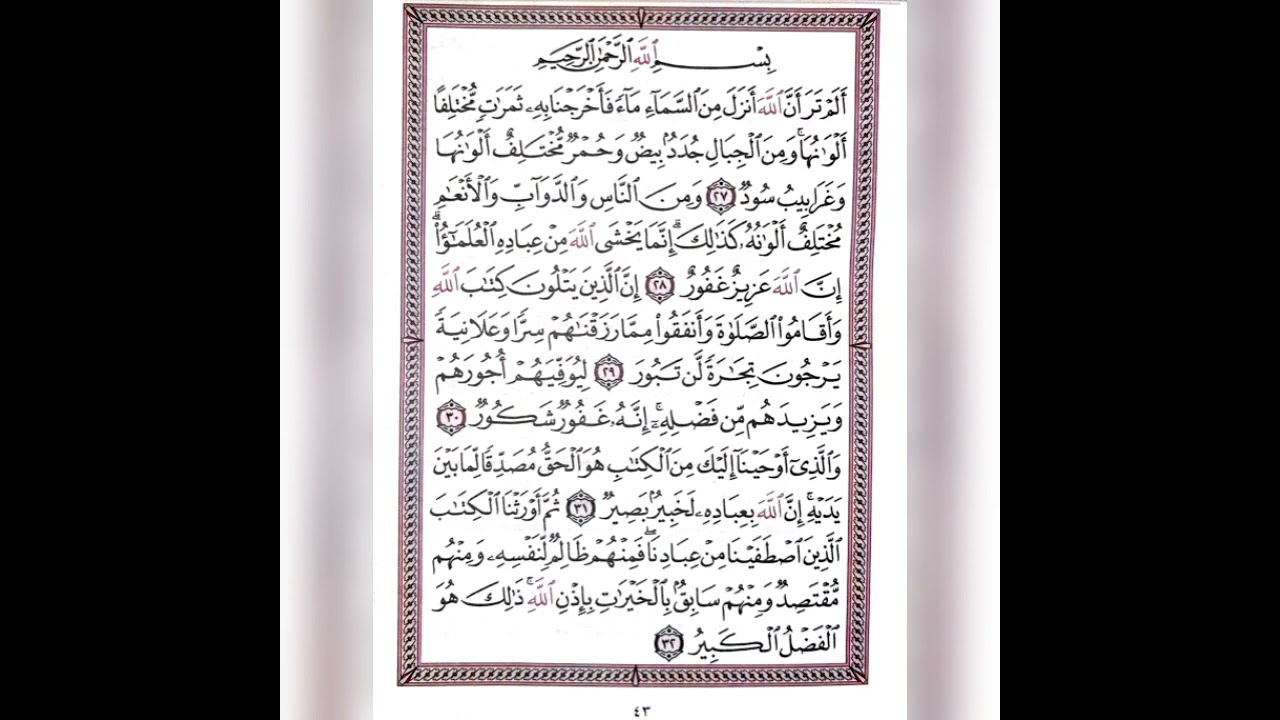 بِسْمِ ٱللَّهِ ٱلرَّحْمَٰنِ ٱلرَّحِيمِ
أَلَمْ تَرَ أَنَّ ٱللَّهَ أَنزَلَ مِنَ ٱلسَّمَآءِ مَآءً فَأَخْرَجْنَا بِهِۦ ثَمَرَٰتٍ مُّخْتَلِفًا
أَلْوَٰنُهَا ۚ وَمِنَ ٱلْجِبَالِ جُدَدٌۢ بِيضٌ وَحُمْرٌ مُّخْتَلِفٌ أَلْوَٰنُهَا
وَغَرَابِيبُ سُودٌ ٢٧ وَمِنَ ٱلنَّاسِ وَٱلدَّوَآبِّ وَٱلْأَنْعَٰمِ
مُخْتَلِفٌ أَلْوَٰنُهُۥ كَذَٰلِكَ ۗ إِنَّمَا يَخْشَى ٱللَّهَ مِنْ عِبَادِهِ ٱلْعُلَمَٰٓؤُا۟ ۗ
إِنَّ ٱللَّهَ عَزِيزٌ غَفُورٌ ٢٨ إِنَّ ٱلَّذِينَ يَتْلُونَ كِتَٰبَ ٱللَّهِ
وَأَقَامُوا۟ ٱلصَّلَوٰةَ وَأَنفَقُوا۟ مِمَّا رَزَقْنَٰهُمْ سِرًّا وَعَلَانِيَةً
يَرْجُونَ تِجَٰرَةً لَّن تَبُورَ ٢٩ لِيُوَفِّيَهُمْ أُجُورَهُمْ
وَيَزِيدَهُم مِّن فَضْلِهِۦٓ ۚ إِنَّهُۥ غَفُورٌ شَكُورٌ ٣٠
وَٱلَّذِىٓ أَوْحَيْنَآ إِلَيْكَ مِنَ ٱلْكِتَٰبِ هُوَ ٱلْحَقُّ مُصَدِّقًا لِّمَا بَيْنَ
يَدَيْهِ ۗ إِنَّ ٱللَّهَ بِعِبَادِهِۦ لَخَبِيرٌۢ بَصِيرٌ ٣١ ثُمَّ أَوْرَثْنَا ٱلْكِتَٰبَ
ٱلَّذِينَ ٱصْطَفَيْنَا مِنْ عِبَادِنَا ۖ فَمِنْهُمْ ظَالِمٌ لِّنَفْسِهِۦ وَمِنْهُم
مُّقْتَصِدٌ وَمِنْهُمْ سَابِقٌۢ بِٱلْخَيْرَٰتِ بِإِذْنِ ٱللَّهِ ۚ ذَٰلِكَ هُوَ
ٱلْفَضْلُ ٱلْكَبِيرُ ٣٢
٤٣